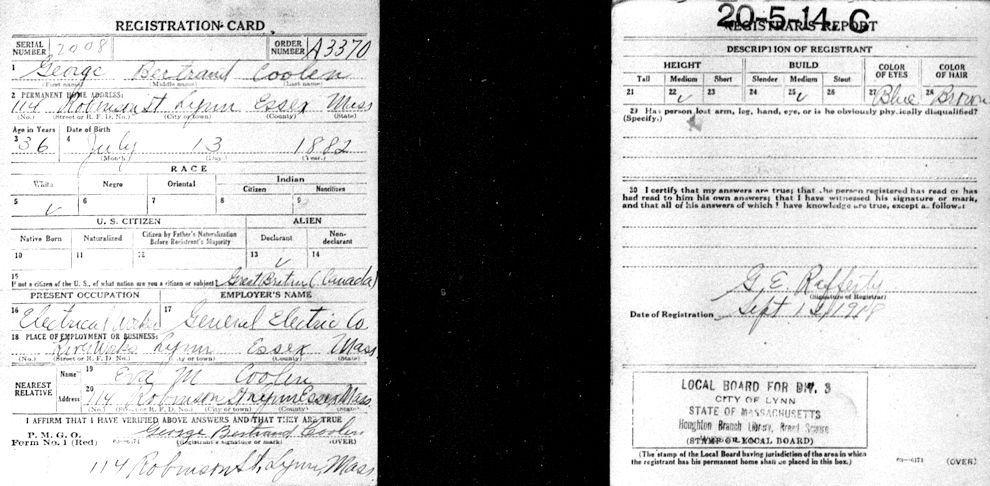 REGISTRATION CARD
SERIAL NUMBER 2008 ORDER NUMBER A3370
1 George Bertrand Coolen
(First name) (Middle name) (Last name)
2 PERMANENT HOME ADDRESS:
114 Robinson St Lynn Essex Mass
(No.) (Street or R. F. D. No.) (City or town) (County) (State)
Age in Years Date of Birth
3 36 4 July 13 1882
(Month) (Day) (Year)
RACE
White Negro Oriental Indian
Citizen Noncitizen
5 ✓ 6 7 8 9
U. S. CITIZEN ALIEN
Native Born Naturalized Citizen by Father's Naturalization Before Registrant's Majority Declarant Non-declarant
10 11 12 13 ✓ 14
15 If not a citizen of the U. S., of what nation are you a citizen or subject? Great Britain (Canada)
PRESENT OCCUPATION EMPLOYER'S NAME
16 Electrical 17 General Electric Co
18 PLACE OF EMPLOYMENT OR BUSINESS:
River Works Lynn Essex Mass
(No.) (Street or R. F. D. No.) (City or town) (County) (State)
NEAREST RELATIVE
Name 19 M Coolen
Address 20 114 Robinson St Lynn Essex Mass
(No.) (Street or R. F. D. No.) (City or town) (County) (State)
I AFFIRM THAT I HAVE VERIFIED ABOVE ANSWERS AND THAT THEY ARE TRUE
P. M. G. O.
Form No. 1 (Red) George Bertrand Coolen
(Registrant's signature or mark) (OVER)
114 Robinson St, Lynn, Mass
20-5-14. C
REGISTRAR'S REPORT
DESCRIPTION OF REGISTRANT
HEIGHT BUILD COLOR OF EYES COLOR OF HAIR
Tall Medium Short Slender Medium Stout
21 22 ✓ 23 24 25 ✓ 26 27 Blue 28 Brown
29 Has person lost arm, leg, hand, eye, or is he obviously physically disqualified?
(Specify.)
30 I certify that my answers are true; that the person registered has read or has
had read to him his own answers; that I have witnessed his signature or mark,
and that all of his answers of which I have knowledge are true, except as follows:
G. E. Rafferty
(Signature of Registrar)
Date of Registration Sept 12/1918
LOCAL BOARD FOR DIV. 3
CITY OF LYNN
STATE OF MASSACHUSETTS
Houghton Branch Library, Broad Square
(STAMP OF LOCAL BOARD)
(The stamp of the Local Board having jurisdiction of the area in which
the registrant has his permanent home shall be placed in this box.)
03—6171 (OVER)